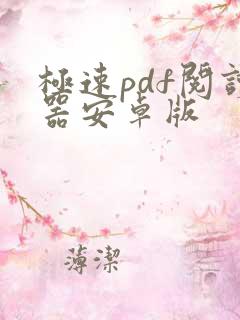 極速pdf閱讀
器安卓版
薄潔